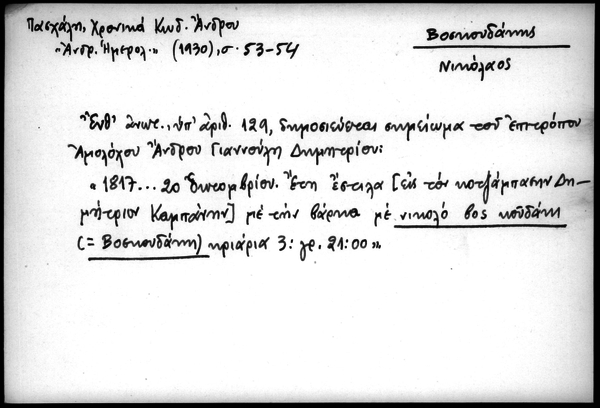 Πασχάλη, Χρονικά Κωδ. Ἄνδρου
"Ἀνδρ. Ἡμερολ." (1930), σ. 53-54
Βοσκουδάκης
Νικόλαος
Ἔνθ' ἀνωτ., ὑπ' ἀριθ. 129, δημοσιεύεται σημείωμα τοῦ ἐπιτρόπου
Ἀμολόχου Ἄνδρου Γιαννούλη Δημητρίου:
"1817... 20 δικεομβρίου. Ἔτη ἔστιλα [εἰς τὸν κοτζάμπασην Δη-
μήτριον Καμπάνην] μὲ τὴν βάρκα μὲ νικολό βος κουδάκη
(= Βοσκουδάκη) κριάρια 3: γρ. 21:00".